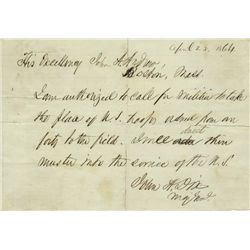 April 23, 1864.
His Excellency John A. Andrew,
Boston, Mass.
I am authorized to call for militia to take
the place of U.S. troops ordered from
forts to the field. I will direct their
muster into the service of the U.S.
John A. Dix
Maj Genl